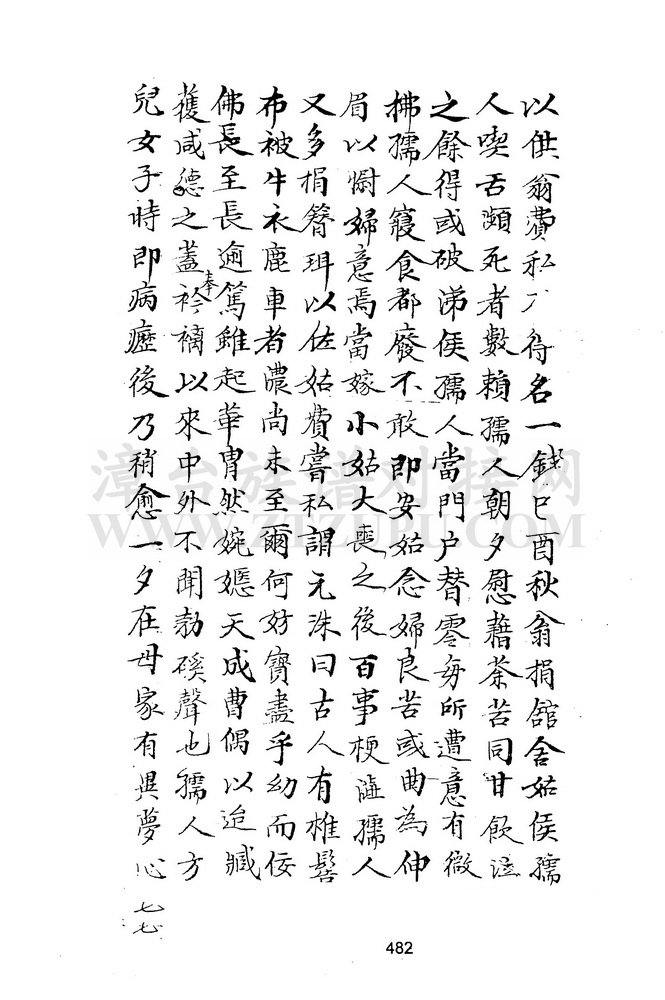 以供翁費私不得名一錢己酉秋翁捐舘舍姑侯孺
人喫舌頻死者數賴孺人朝夕慰藉茶苦同甘飲泣
之餘得或破涕侯孺人當門户替零每所遭意有微
拂孺人寢食都廢不敢即安姑念婦良苦或曲為伸
眉以慰婦意焉當嫁小姑大喪之後百事梗澁孺人
又多捐簪珥以佐姑費嘗私謂元洙曰古人有椎髻
布被牛衣鹿車者濃尚未至爾何妨寶盡乎幼而佞
佛長至長逾篤雖起華胄然婉嫕天成曹偶以迨臧
獲咸德之蓋奉衿褵以來中外不聞勃磎聲也孺人方
兒女子時即病瘧後乃稍愈一夕在母家有異夢心
七七
482
漳台族谱对接网
WWW.ZTZUPU.COM